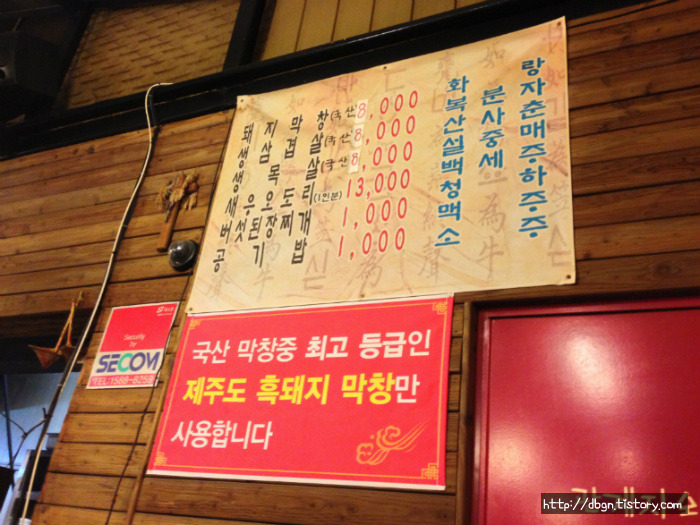 돼지막창(국산) 8,000
생삼겹살(국산) 8,000
생목살(국산) 8,000
새우오도리(1인분) 13,000
버섯된장찌개 1,000
공기밥 1,000
화랑
복분자
산사춘
설중매
백세주
청하
맥주
소주
국산 막창중 최고 등급인
제주도 흑돼지 막창만
사용합니다
Security
by
SECOM
http://dbgn.tistory.com